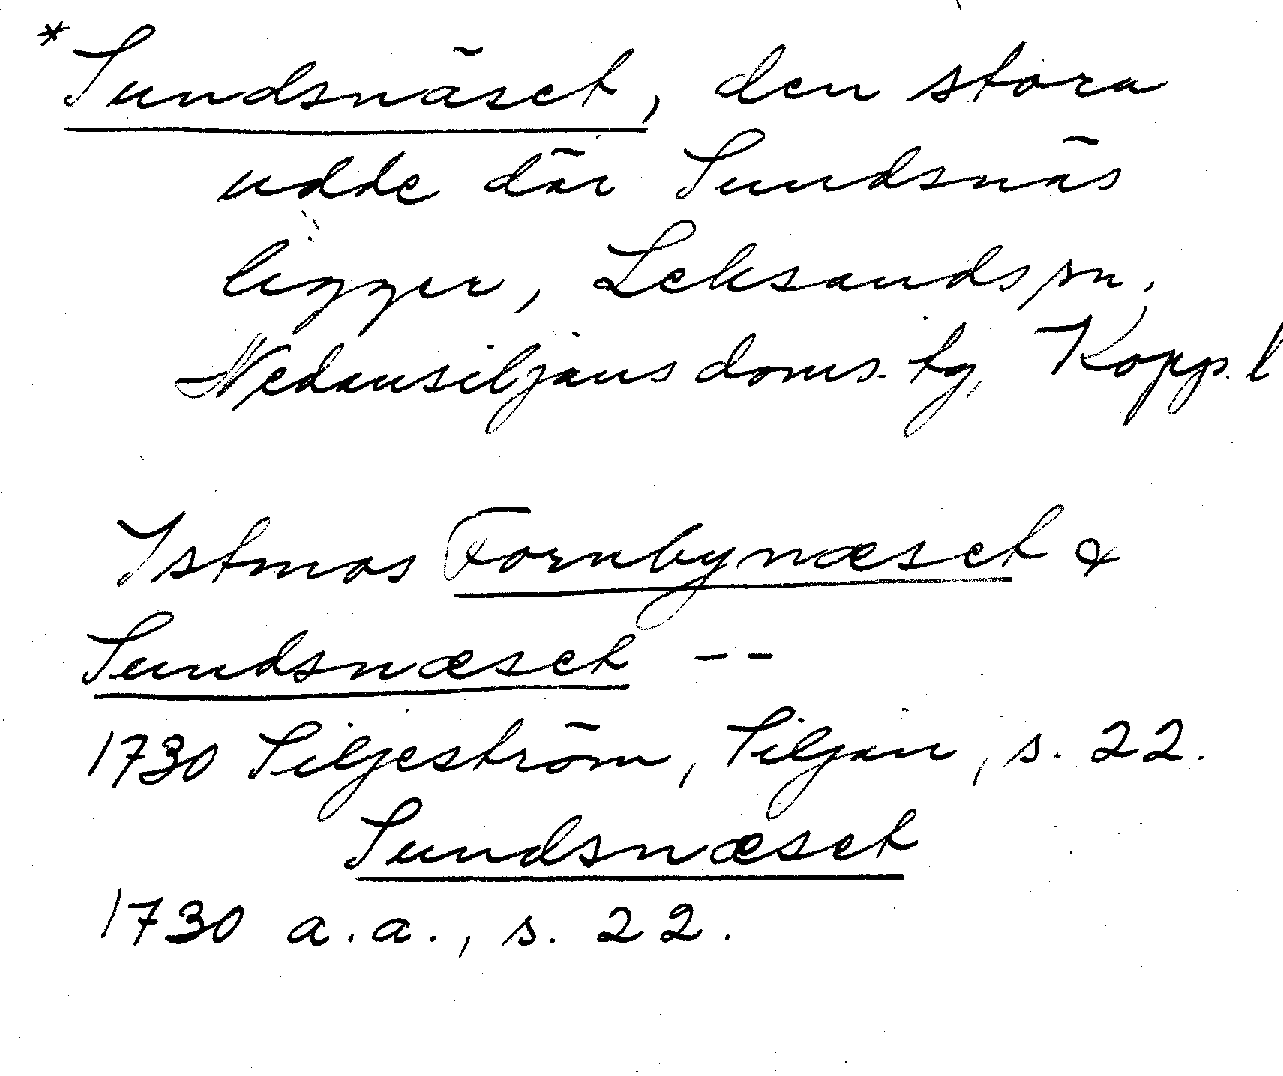 *Sundsnäset, den stora
udde där Sundsnäs
ligger, Leksands sn,
Nedansiljans doms. tg, Kopp. l
Istmos Fornbynæset &
Sundsnæset --
1730 Siljeström, Siljan, s. 22.
Sundsnæset
1730 a.a., s. 22.